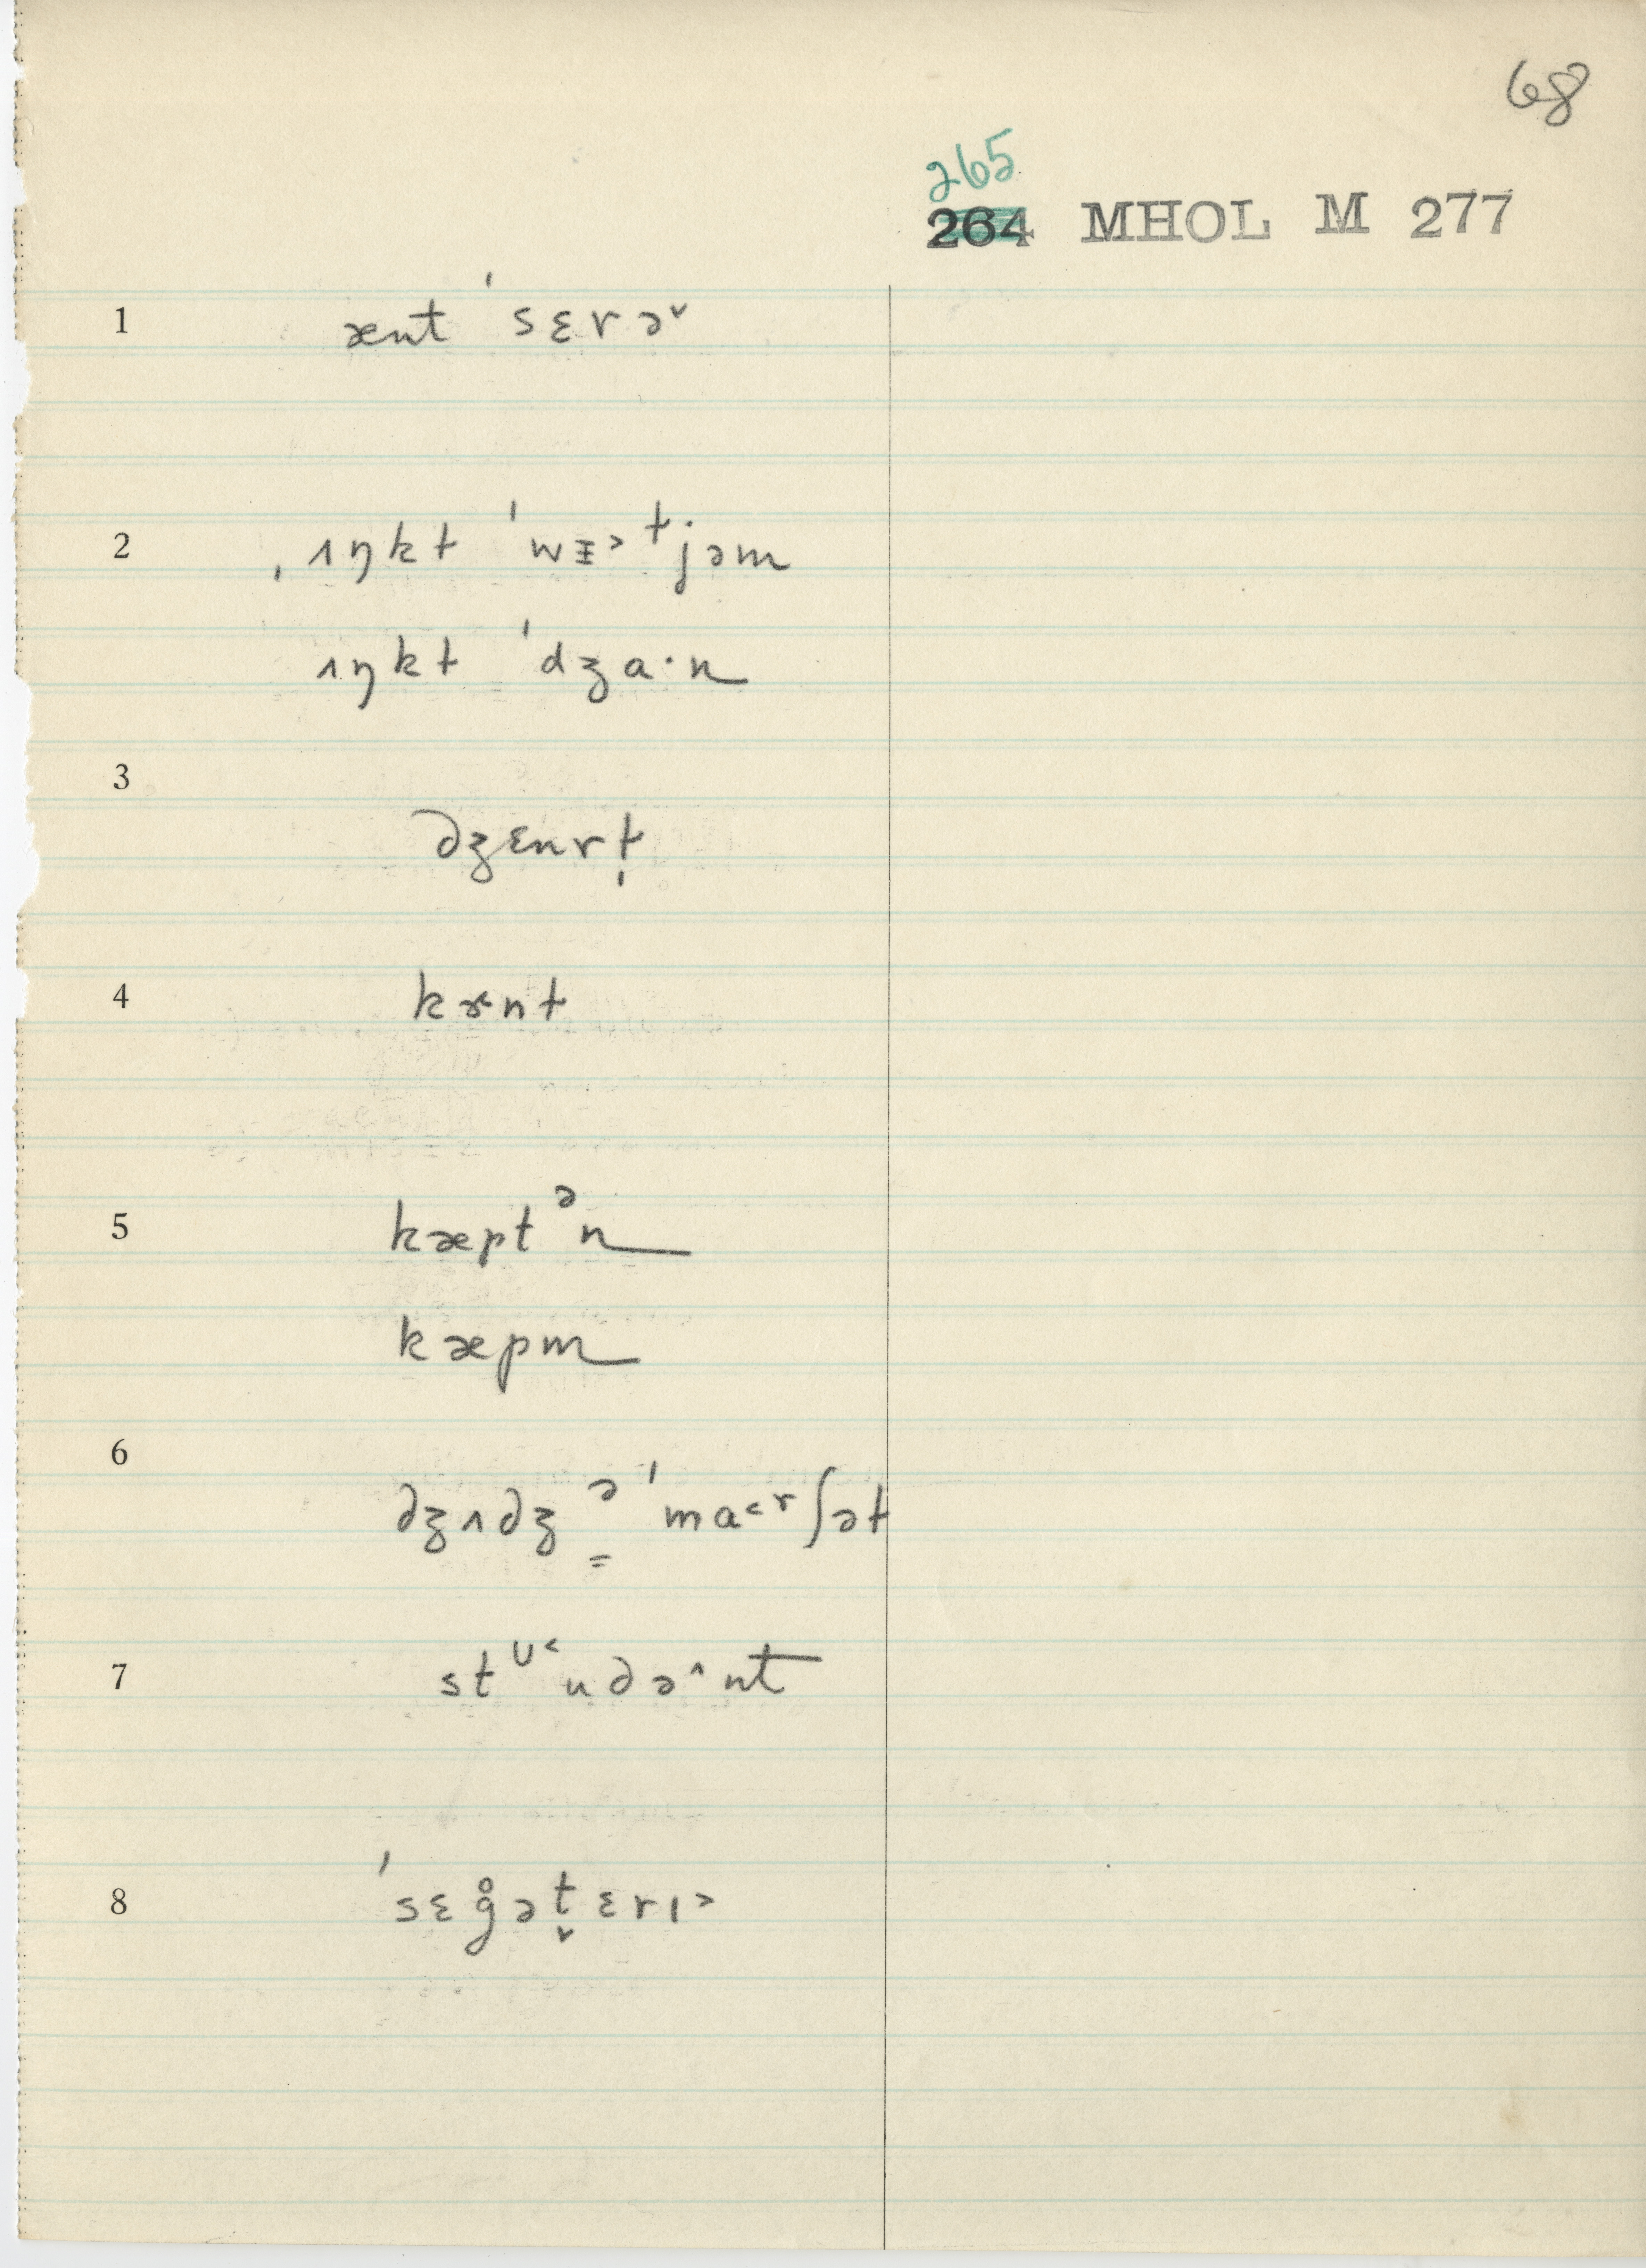 68
265
264 MHOL M 277
1 ænt ˈsɛrə˅
2 ˌɪŋkɫ ˈwᵻ˃ɫjəm
ɪŋkɫ ˈdʒa·n
3 dʒɛnrɫ̩
4 kɝnɫ
5 kæptᵊn
kæpm
6 dʒʌdʒ ᵊ̳ ˈma˂ʳʃəɫ
7 stᶷ˂udə˄nt
8 ˈsɛg̊ət̬ɛrɪ˃